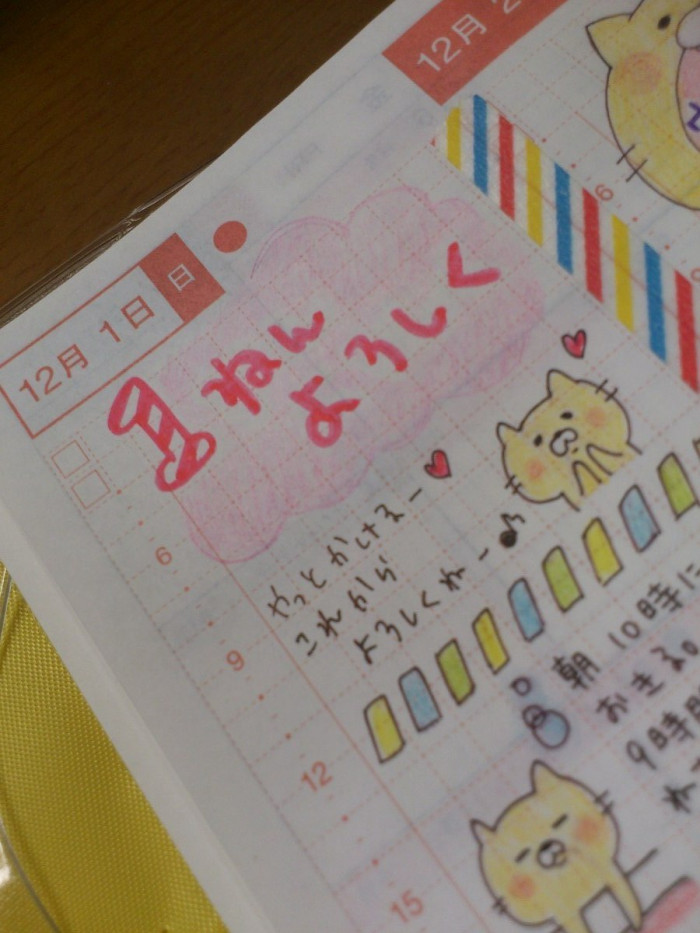 12月 1日 日
1ねん
よろしく
やっとかけるー
これから
よろしくねー
朝10時に
おきる。
9時間
ねて
6
9
12
15
12月 2
6